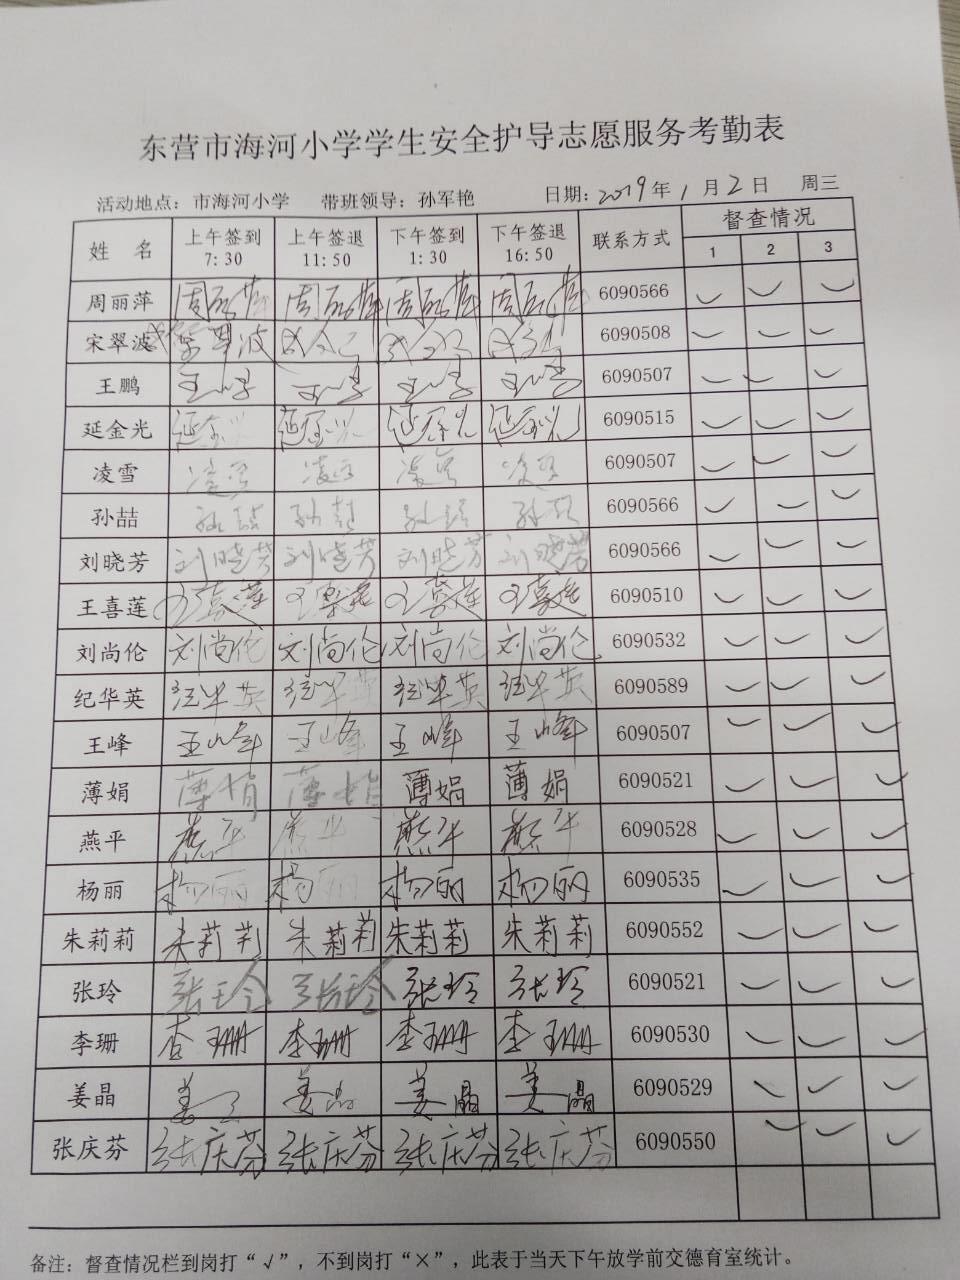 东营市海河小学学生安全护导志愿服务考勤表
活动地点：市海河小学 带班领导：孙军艳 日期：2019年1月2日 周三
姓 名 上午签到 7:30 上午签退 11:50 下午签到 1:30 下午签退 16:50 联系方式 督查情况 1 2 3
周丽萍 周丽萍 周丽萍 周丽萍 周丽萍 6090566 ✓ ✓ ✓
宋翠波 6090508 ✓ ✓ ✓
王鹏 6090507 ✓ ✓ ✓
延金光 延金光 延金光 延金光 延金光 6090515 ✓ ✓ ✓
凌雪 凌雪 凌雪 凌雪 凌雪 6090507 ✓ ✓ ✓
孙喆 孙喆 孙喆 孙喆 孙喆 6090566 ✓ ✓ ✓
刘晓芳 刘晓芳 刘晓芳 刘晓芳 刘晓芳 6090566 ✓ ✓ ✓
王喜莲 王喜莲 王喜莲 王喜莲 王喜莲 6090510 ✓ ✓ ✓
刘尚伦 刘尚伦 刘尚伦 刘尚伦 刘尚伦 6090532 ✓ ✓ ✓
纪华英 纪华英 纪华英 纪华英 纪华英 6090589 ✓ ✓ ✓
王峰 王峰 王峰 王峰 王峰 6090507 ✓ ✓ ✓
薄娟 薄娟 薄娟 薄娟 薄娟 6090521 ✓ ✓ ✓
燕平 燕平 燕平 燕平 燕平 6090528 ✓ ✓ ✓
杨丽 杨丽 杨丽 杨丽 杨丽 6090535 ✓ ✓ ✓
朱莉莉 朱莉莉 朱莉莉 朱莉莉 朱莉莉 6090552 ✓ ✓ ✓
张玲 张玲 张玲 张玲 张玲 6090521 ✓ ✓ ✓
李珊 李珊 李珊 李珊 李珊 6090530 ✓ ✓ ✓
姜晶 姜晶 姜晶 姜晶 6090529 ✓ ✓ ✓
张庆芬 张庆芬 张庆芬 张庆芬 张庆芬 6090550 ✓ ✓ ✓
备注：督查情况栏到岗打“√”，不到岗打“×”，此表于当天下午放学前交德育室统计。